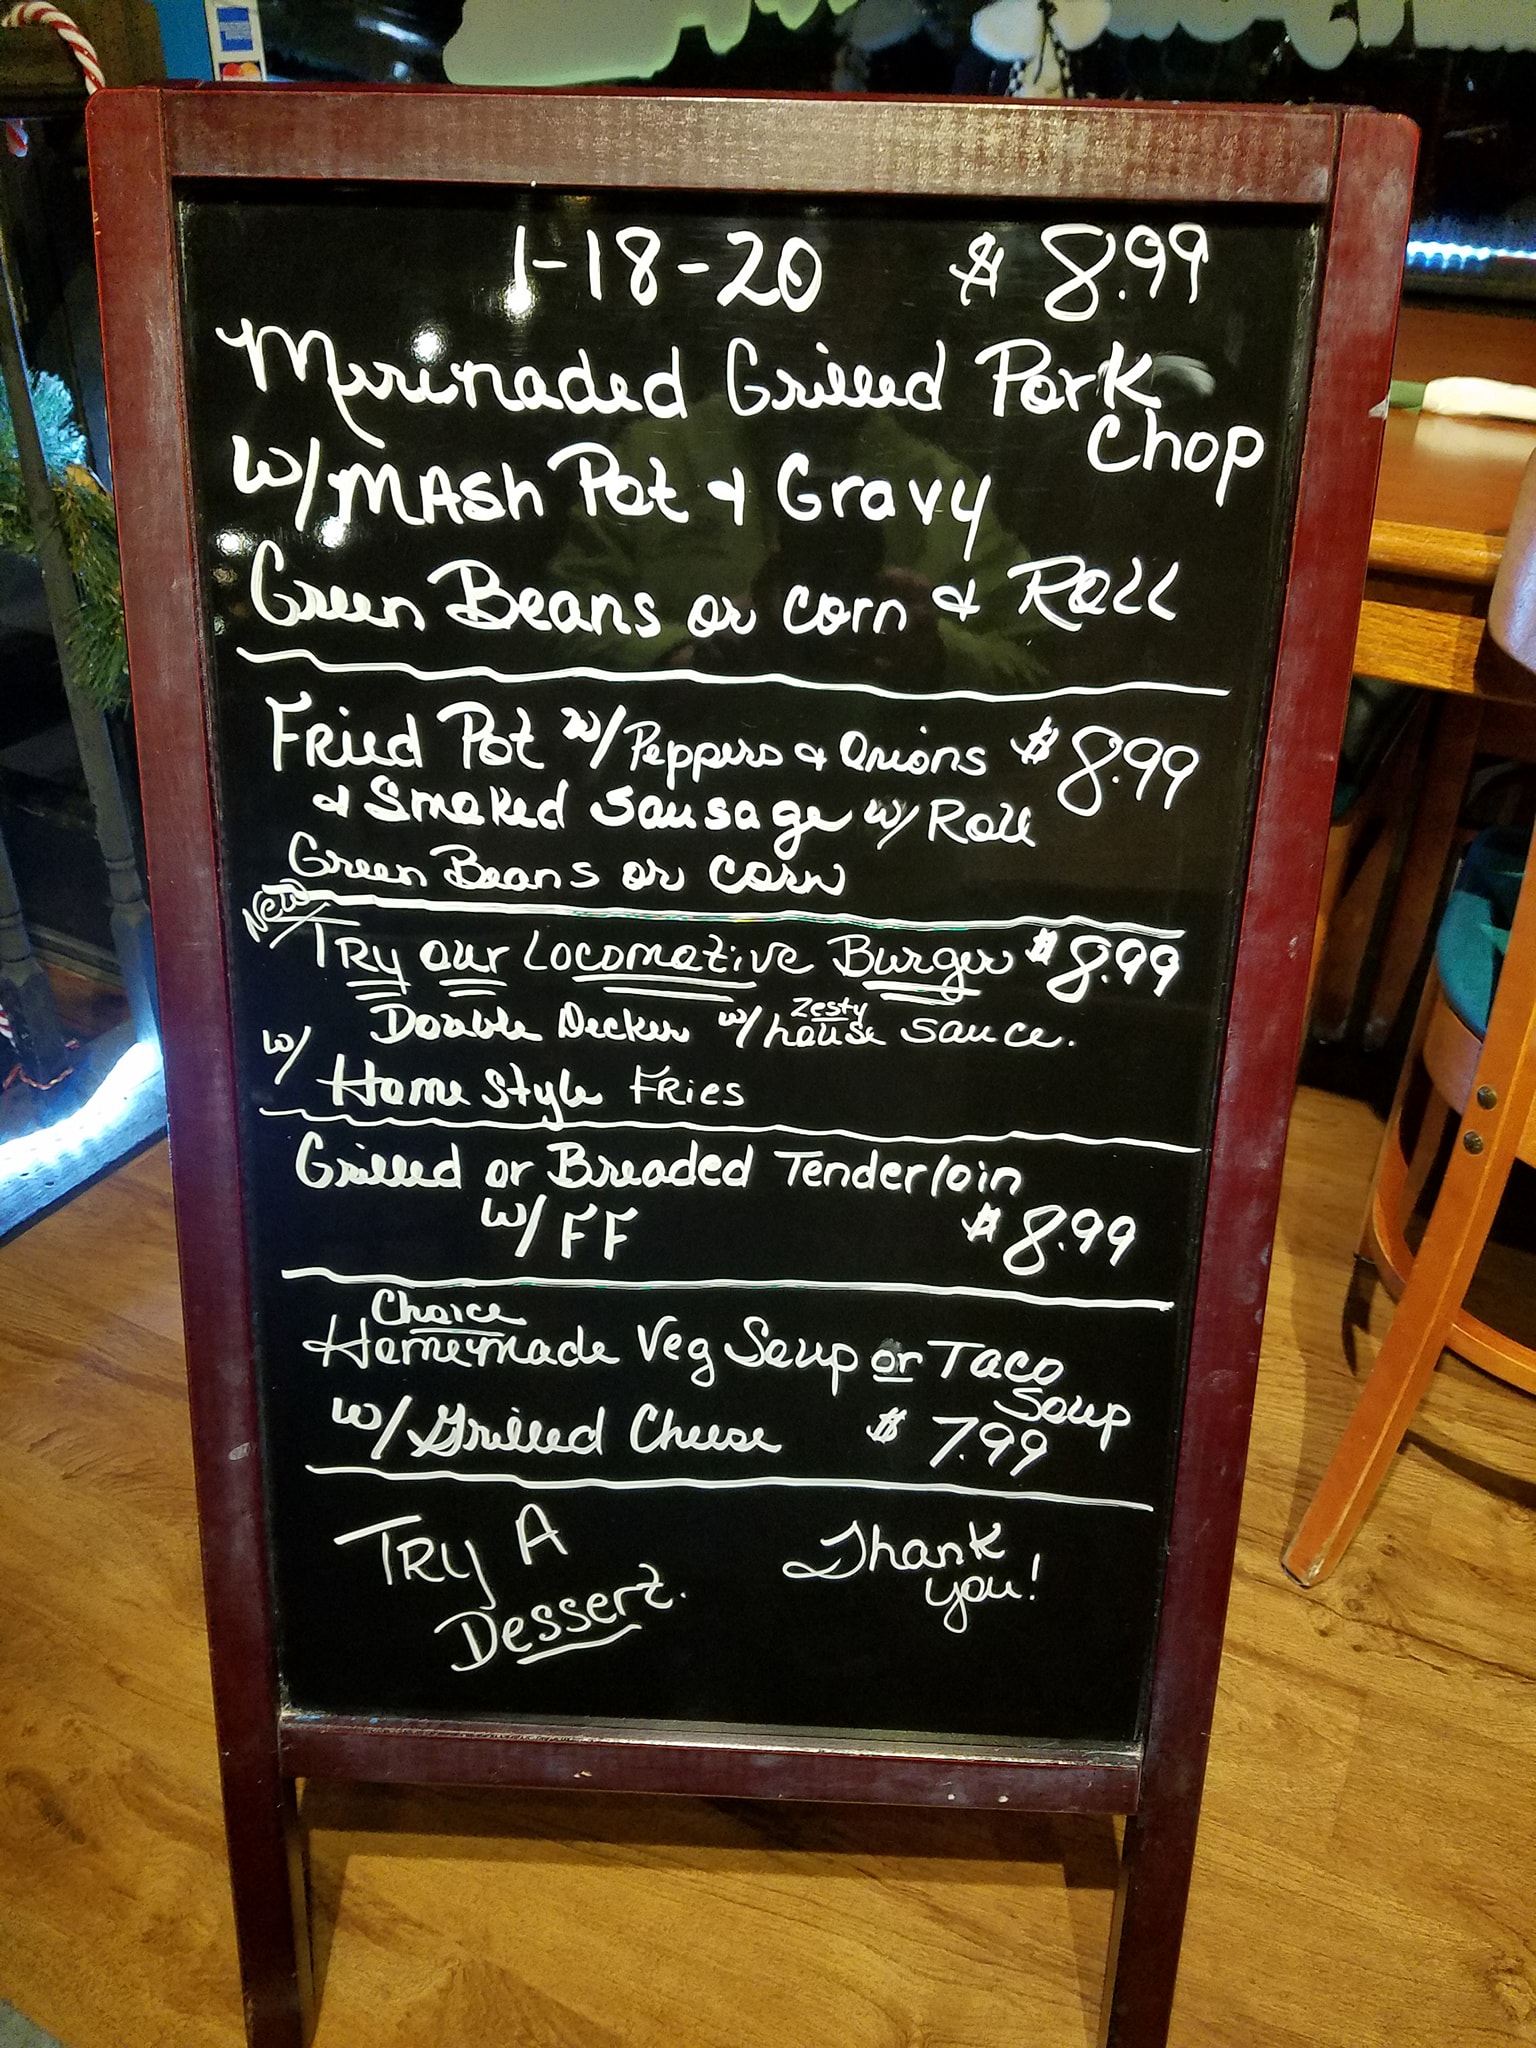 1-18-20 $ 8.99
Marinaded Grilled Pork Chop
w/ MASH Pot & Gravy
Green Beans or corn & Roll
Fried Pot w/ Peppers & Onions $ 8.99
& Smoked Sausage w/ Roll
Green Beans or corn
New
TRY our Locomotive Burger $ 8.99
Double Decker w/ Zesty house sauce.
w/ Home Style Fries
Grilled or Breaded Tenderloin
w/ FF $ 8.99
Choice
Homemade Veg Soup or Taco Soup
w/ Grilled Cheese $ 7.99
TRY A Dessert.
Thank you!